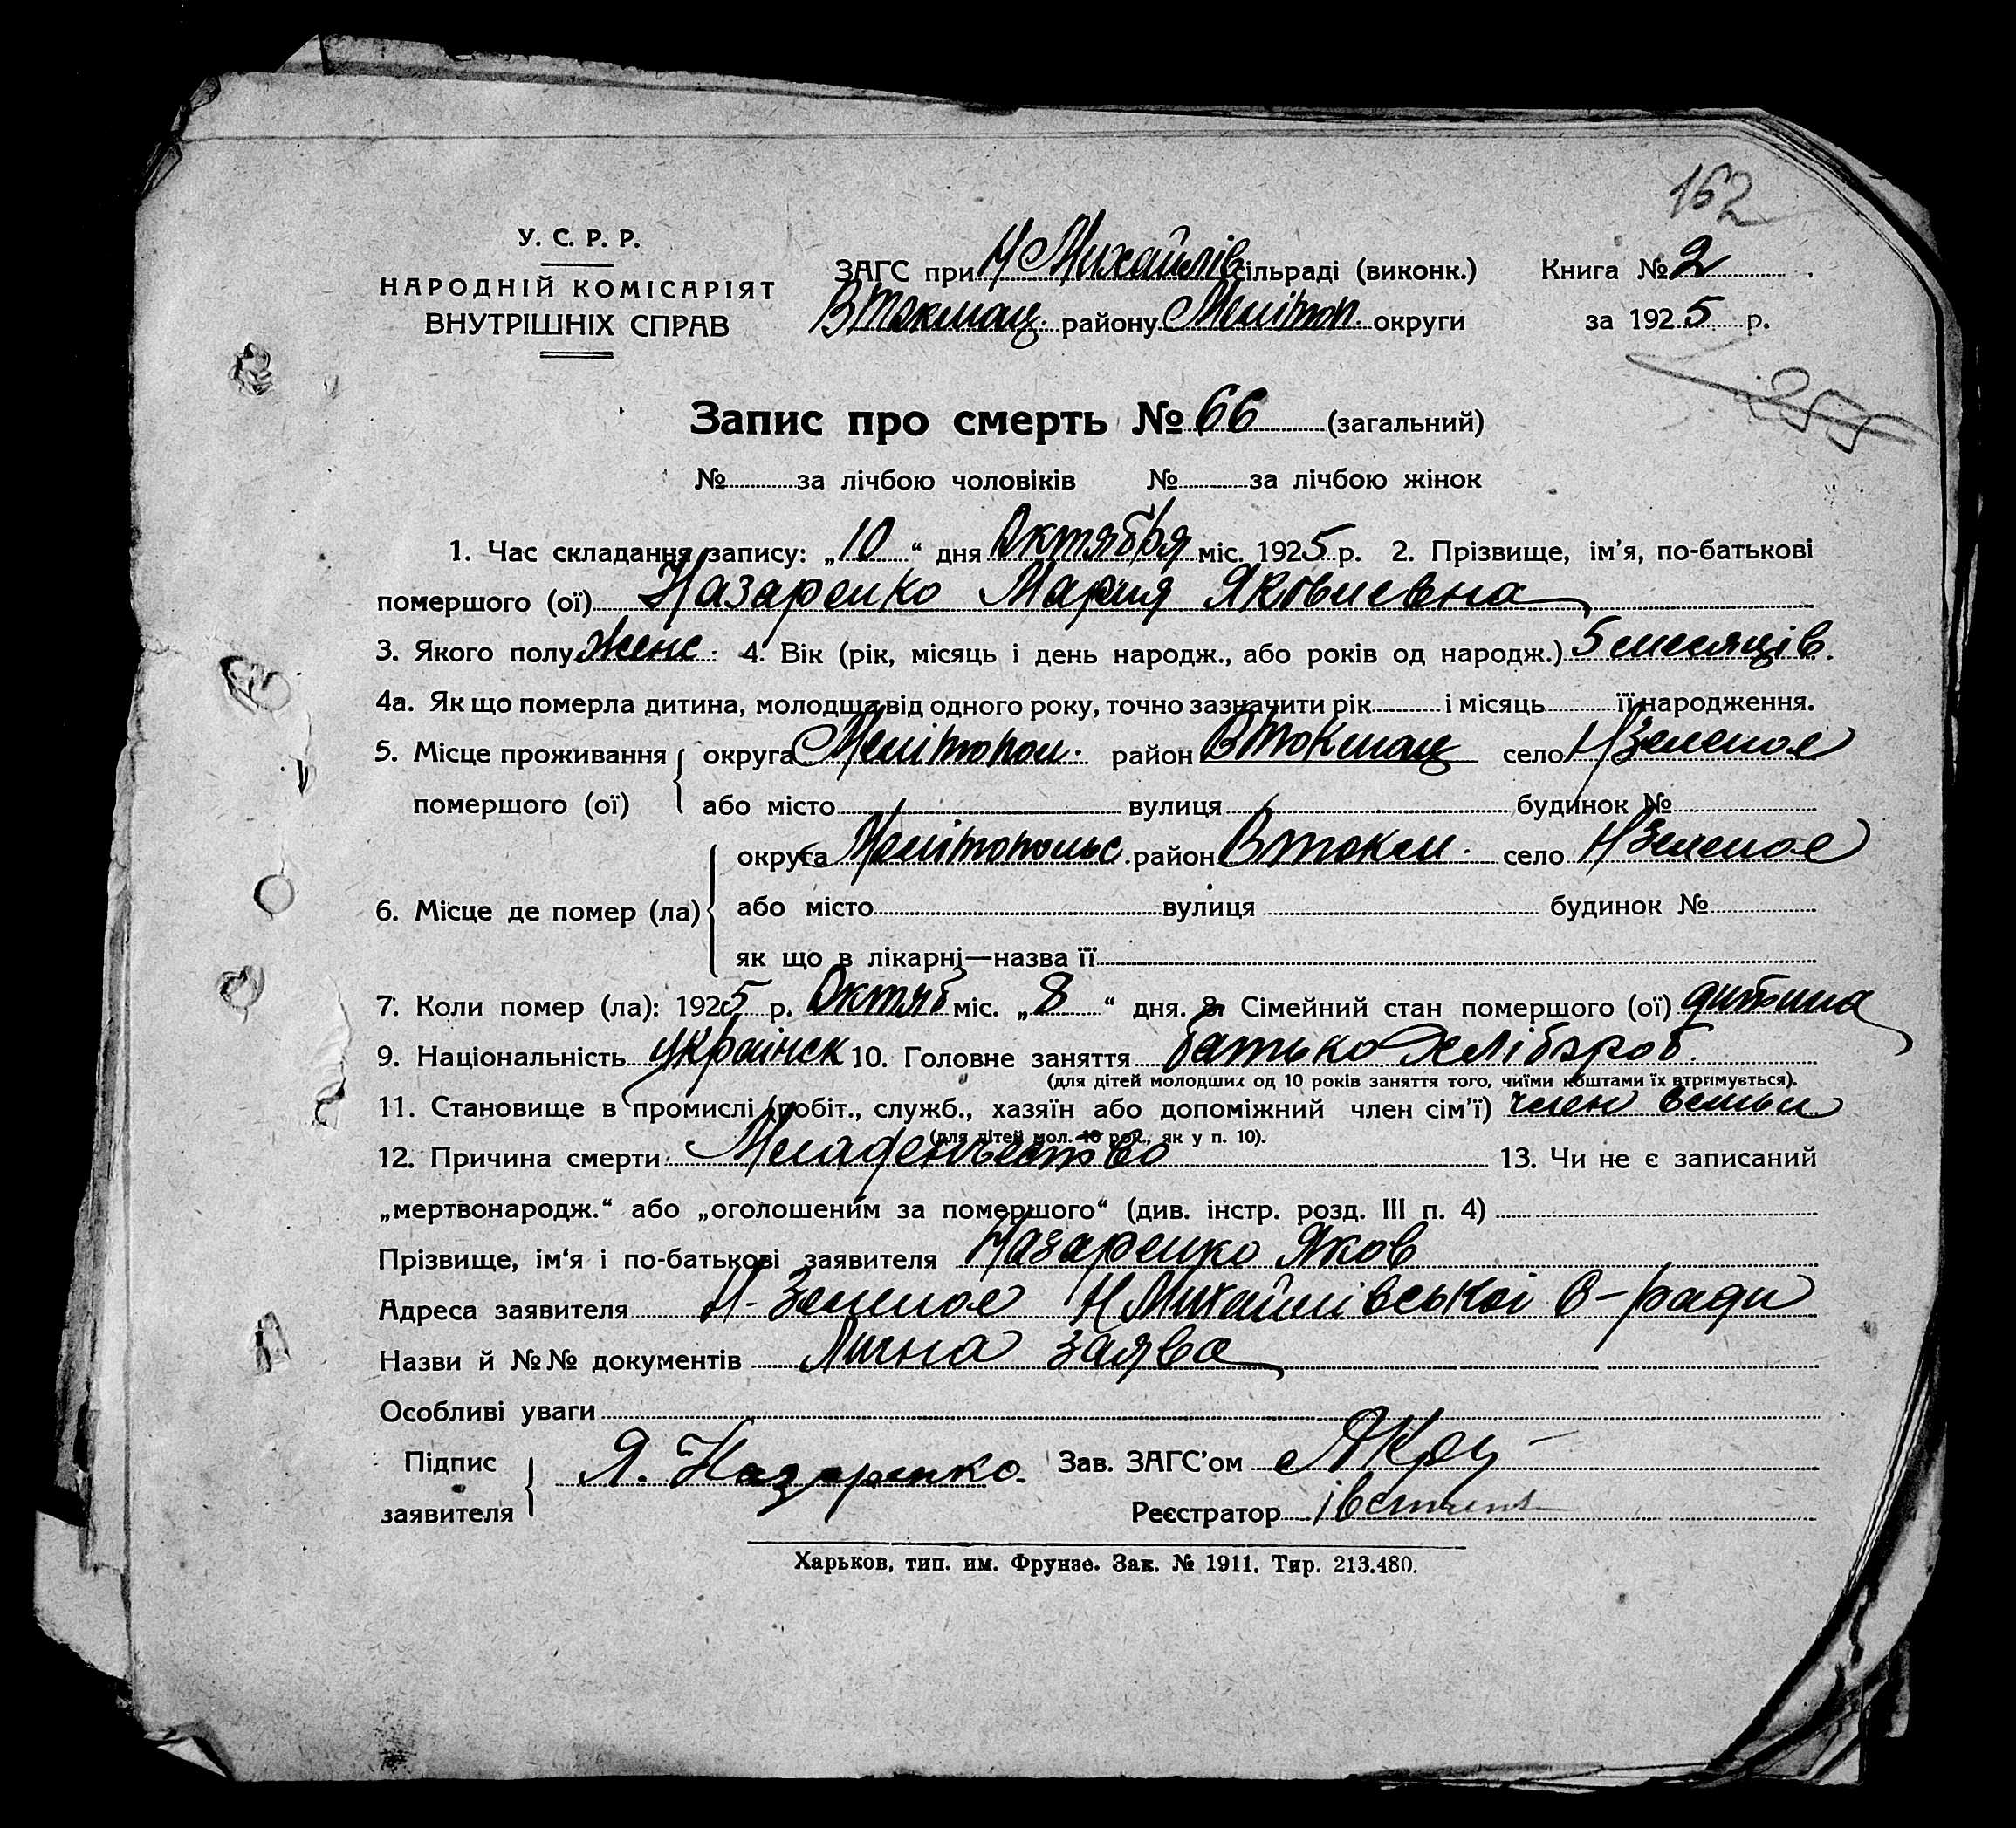 162
У. С. Р. Р.
НАРОДНІЙ КОМІСАРІЯТ
ВНУТРІШНІХ СПРАВ
ЗАГС при Н Михайлів сільраді (виконк.)
В Токмац. району Мелітоп. округи
Книга № 2
за 1925 р.
255
Запис про смерть № 66 (загальний)
№ за лічбою чоловіків № за лічбою жінок
1. Час складання запису: „10“ дня Октября міс. 1925 р. 2. Прізвище, ім’я, по-батькові
помершого (ої) Назаренко Мария Яковлевна
3. Якого полу Женс. 4. Вік (рік, місяць і день народж., або років од народж.) 5 месяців.
4а. Як що померла дитина, молодша від одного року, точно зазначити рік і місяць її народження.
5. Місце проживання округа Мелітопол. район В Токмац село Н Зеленое
помершого (ої) або місто вулиця будинок №
округа Мелітопольс. район В Токм. село Н Зеленое
6. Місце де помер (ла) або місто вулиця будинок №
як що в лікарні—назва її
7. Коли помер (ла): 1925 р. Октяб міс. „8“ дня. 8. Сімейний стан помершого (ої) дитина
9. Національність українск 10. Головне заняття батько Хлібороб.
(для дітей молодших од 10 років заняття того, чиїми коштами їх втримується).
11. Становище в промислі (робіт., служб., хазяїн або допоміжний член сім’ї) член семьи
(для дітей мол. 10 рок., як у п. 10).
12. Причина смерти Младенчество 13. Чи не є записаний
„мертвонародж.“ або „оголошеним за помершого“ (див. інстр. розд. III п. 4)
Прізвище, ім‘я і по-батькові заявителя Назаренко Яков
Адреса заявителя Н-Зеленое Н Михайлівської С-ради
Назви й №№ документів Лична заява
Особливі уваги
Підпис заявителя Я. Назаренко.
Зав. ЗАГС’ом
Реєстратор
Харьков, тип. им. Фрунзе. Зак. № 1911. Тир. 213.480.